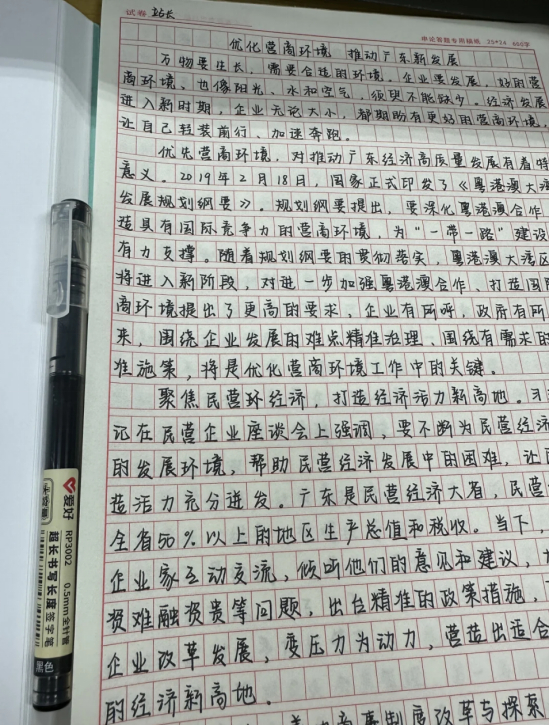 试卷 站长
申论答题专用稿纸 25*24 600字
优化营商环境 推动广东新发展
万物要生长，需要合适的环境。企业要发展，好的营
商环境、也像阳光、水和空气，须臾不能缺少。经济发展
进入新时期，企业无论大小，都期盼有更好的营商环境，
让自己轻装前行、加速奔跑。
优先营商环境，对推动广东经济高质量发展有着特
意义。2019年2月18日，国家正式印发了《粤港澳大湾
发展规划纲要》。规划纲要提出，要深化粤港澳合作，
造具有国际竞争力的营商环境，为“一带一路”建设
有力支撑。随着规划纲要的贯彻落实，粤港澳大湾区
将进入新阶段，对进一步加强粤港澳合作、打造国际
商环境提出了更高的要求、企业有所呼，政府有所
来，围绕企业发展的难点精准治理、围绕有需求的
准施策，将是优化营商环境工作中的关键。
聚焦民营环经济，打造经济活力新高地。习
记在民营企业座谈会上强调，要不断为民营经济
的发展环境，帮助民营经济发展中的困难，让
造活力充分迸发。广东是民营经济大省，民营
全省50%以上的地区生产总值和税收。当下，
企业家互动交流，倾听他们的意见和建议，
资难融资贵等问题，出台精准的政策措施，
企业改革发展，变压力为动力，营造出适合
的经济新高地。
商事制度改革与探索
爱好 RP3002 0.5mm全针管
大容量 超长书写长度 签字笔
黑色